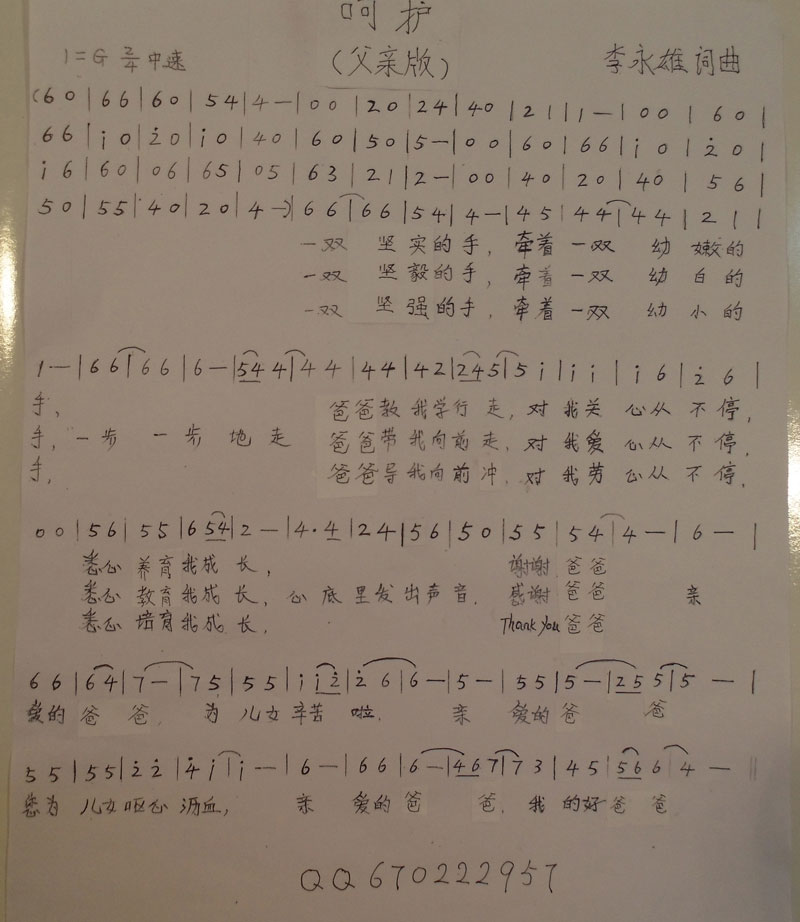 呵护
1=G 2/4 中速 (父亲版) 李永雄 词曲
(6 0 | 6 6 | 6 0 | 5 4 | 4 — | 0 0 | 2 0 | 2 4 | 4 0 | 2 1 | 1 — | 0 0 | 6 0 |
6 6 | i 0 | 2̇ 0 | i 0 | 4 0 | 6 0 | 5 0 | 5 — | 0 0 | 6 0 | 6 6 | i 0 | 2̇ 0 |
i 6 | 6 0 | 0 6 | 6 5 | 0 5 | 6 3 | 2 1 | 2 — | 0 0 | 4 0 | 2 0 | 4 0 | 5 6 |
5 0 | 5 5 | 4 0 | 2 0 | 4 —) | 6 6 | 6 6 | 5 4 | 4 — | 4 5 | 4 4 | 4 4 | 2 1 |
一双 坚实的手, 牵着一双 幼嫩的
一双 坚毅的手, 牵着一双 幼白的
一双 坚强的手, 牵着一双 幼小的
1 — | 6 6 | 6 6 | 6 — | 5 4 4 | 4 4 | 4 4 | 4 2 | 2 4 5 | 5 i | i i | i 6 | 2̇ 6 |
手, 爸爸教我学行走, 对我关心从不停,
手, 一步一步地走 爸爸带我向前走, 对我爱心从不停,
手, 爸爸导我向前冲, 对我劳心从不停,
0 0 | 5 6 | 5 5 | 6 5 4 | 2 — | 4 · 4 | 2 4 | 5 6 | 5 0 | 5 5 | 5 4 | 4 — | 6 — |
悉心养育我成长, 谢谢爸爸
悉心教育我成长, 心底里发出声音. 感谢爸爸 亲
悉心培育我成长, Thank you 爸爸
6 6 | 6 4 | 7 — | 7 5 | 5 5 | i i 2̇ | 2̇ 6 | 6 — | 5 — | 5 5 | 5 — | 2 5 5 | 5 — |
爱的爸爸, 为儿女辛苦啦, 亲爱的爸爸
5 5 | 5 5 | 2̇ 2̇ | 4̇ i | i — | 6 — | 6 6 | 6 — | 4 6 7 | 7 3 | 4 5 | 5 6 6 | 4 — ‖
您为儿女呕心沥血, 亲爱的爸爸, 我的好爸爸
QQ 670222957